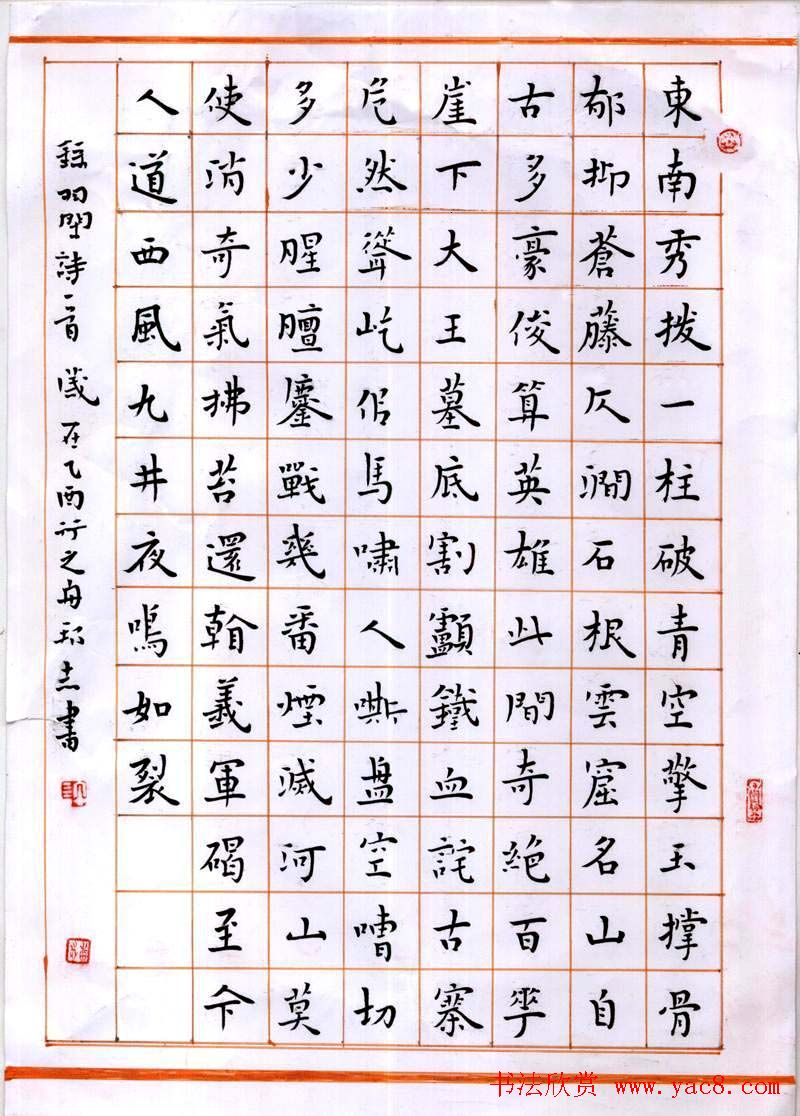 東南秀拔一柱破青空擎玉撐骨
郁抑蒼藤仄澗石根雲窟名山自
古多豪俊算英雄此間奇絕百
崖下大王墓底割顱鐵血詫古寨
危然聳屹佀馬嘯人嘶盘空嘈切
多少腥膻鏖戰幾番煙滅河山莫
使消奇氣拂苔還翰義軍碣至今
人道西風九井夜鳴如裂
錄 詩一首 歲在乙酉行之舟 志書
书法欣赏 www.yac8.com